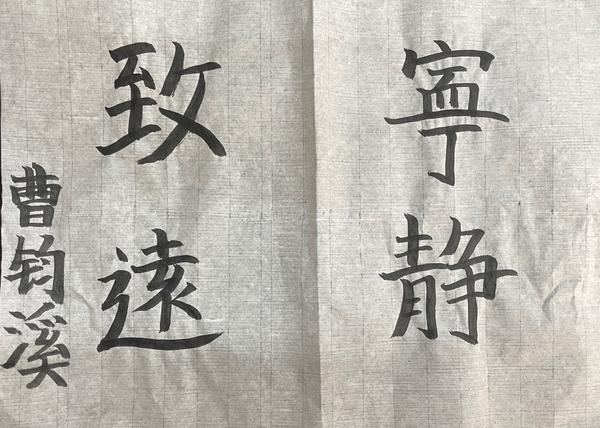 寧静
致遠
曹钧溪